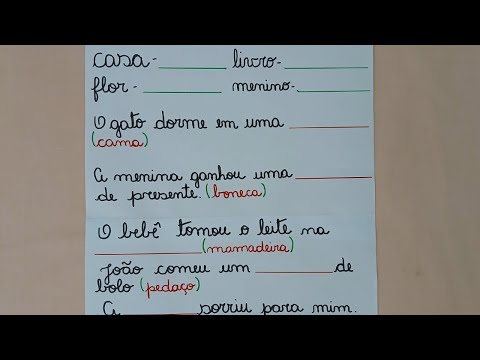 casa - ________ livro - ________
flor - ________ menino - ________
O gato dorme em uma ________
(cama)
A menina ganhou uma ________
de presente. (boneca)
O bebê tomou o leite na
________ (mamadeira)
João comeu um ________ de
bolo (pedaço)
A ________ sorriu para mim.